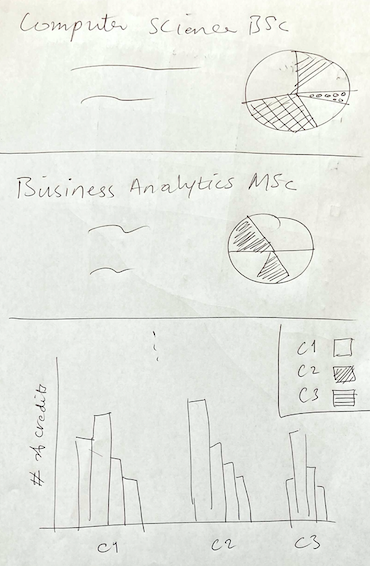 Computer Science BSc
Business Analytics MSc
C1
C2
C3
# of credits
C1 C2 C3